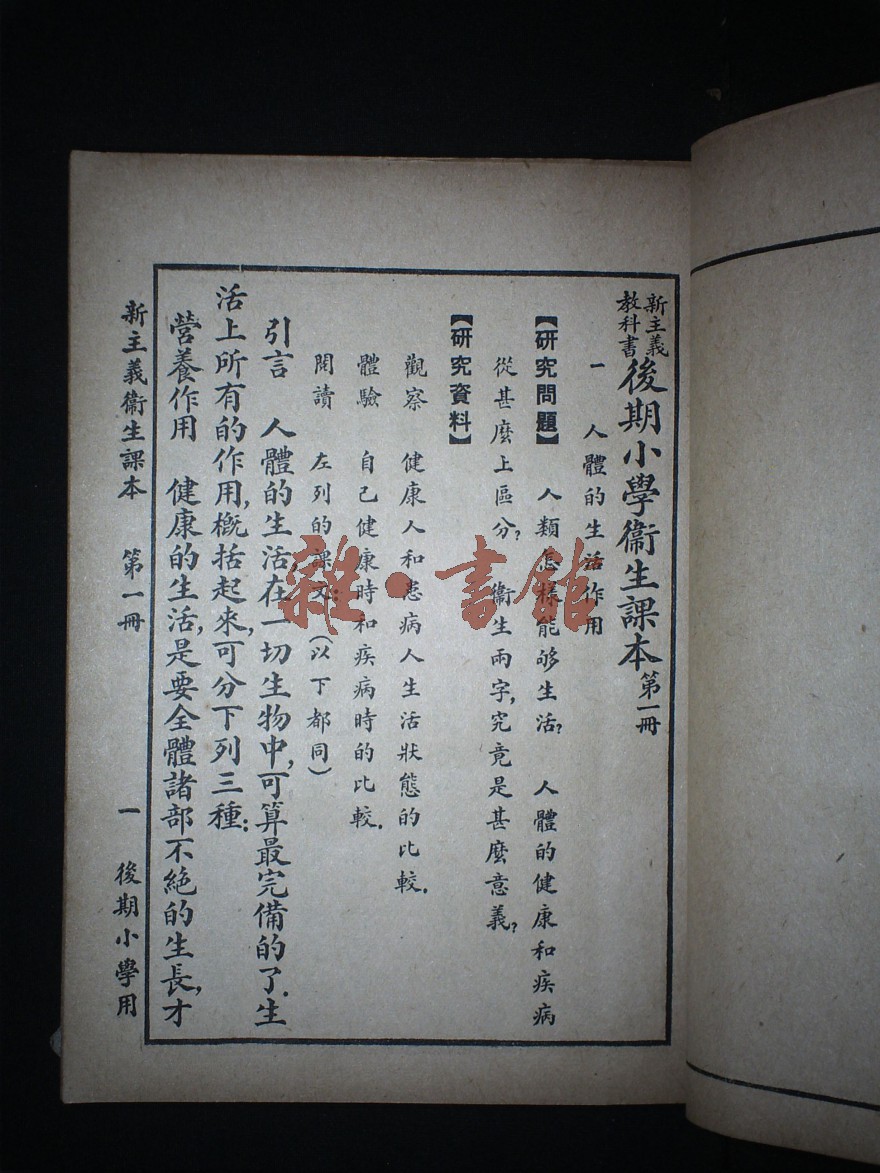 新主義教科書後期小學衞生課本第一冊
一 人體的生活作用
【研究問題】 人類怎樣能够生活？ 人體的健康和疾病
從甚麼上區分？ 衞生兩字，究竟是甚麼意義？
【研究資料】
觀察 健康人和患病人生活狀態的比較．
體驗 自己健康時和疾病時的比較．
閱讀 左列的課文：（以下都同）
引言 人體的生活在一切生物中，可算最完備的了．生
活上所有的作用，槪括起來，可分下列三種：
營養作用 健康的生活，是要全體諸部不絕的生長，才
新主義衞生課本 第一冊 一 後期小學用
雜·書館